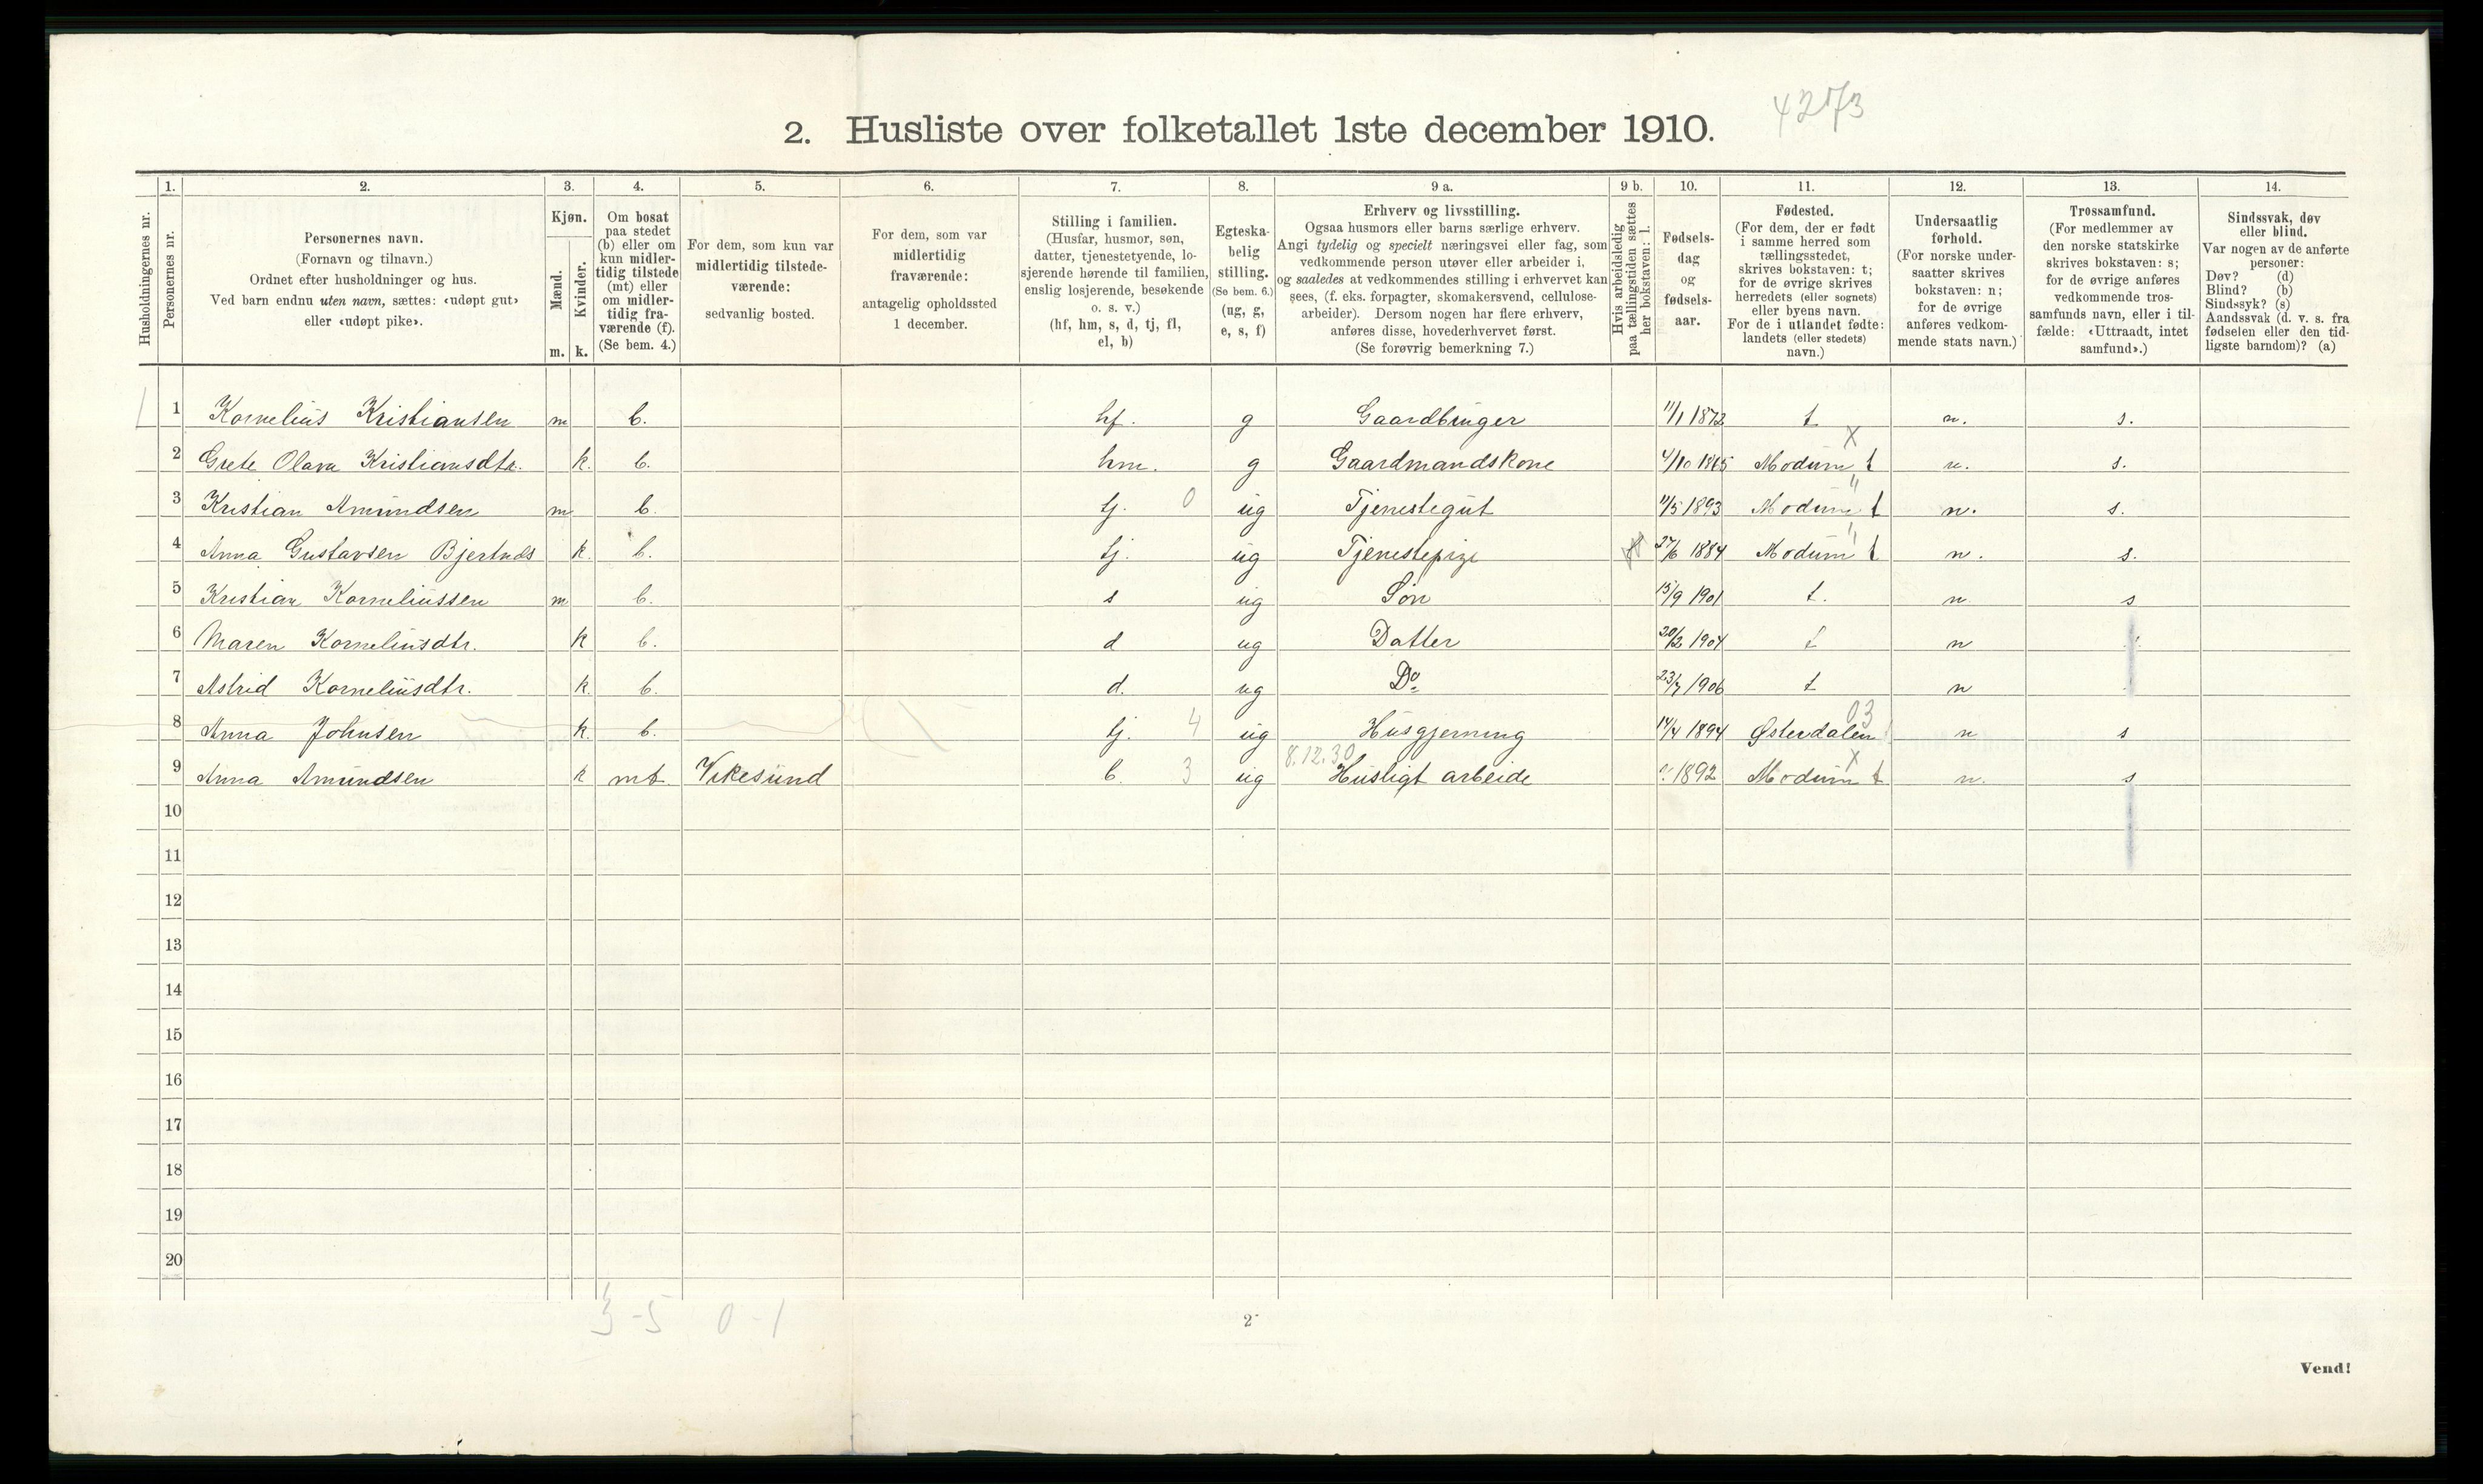 4273
2. Husliste over folketallet 1ste december 1910.
Husholdningernes nr.
1. Personernes nr.
2. Personernes navn. (Fornavn og tilnavn.) Ordnet efter husholdninger og hus. Ved barn endnu uten navn, sættes: «udøpt gut» eller «udøpt pike».
3. Kjøn. Mænd. m. Kvinder. k.
4. Om bosat paa stedet (b) eller om kun midlertidig tilstede (mt) eller om midlertidig fraværende (f). (Se bem. 4.)
5. For dem, som kun var midlertidig tilstedeværende: sedvanlig bosted.
6. For dem, som var midlertidig fraværende: antagelig opholdssted 1 december.
7. Stilling i familien. (Husfar, husmor, søn, datter, tjenestetyende, losjerende hørende til familien, enslig losjerende, besøkende o. s. v.) (hf, hm, s, d, tj, fl, el, b)
8. Egteskabelig stilling. (Se bem. 6.) (ug, g, e, s, f)
9 a. Erhverv og livsstilling. Ogsaa husmors eller barns særlige erhverv. Angi tydelig og specielt næringsvei eller fag, som vedkommende person utøver eller arbeider i, og saaledes at vedkommendes stilling i erhvervet kan sees, (f. eks. forpagter, skomakersvend, cellulosearbeider). Dersom nogen har flere erhverv, anføres disse, hovederhvervet først. (Se forøvrig bemerkning 7.)
9 b. Hvis arbeidsledig paa tællingstiden sættes her bokstaven: l.
10. Fødselsdag og fødselsaar.
11. Fødested. (For dem, der er født i samme herred som tællingsstedet, skrives bokstaven: t; for de øvrige skrives herredets (eller sognets) eller byens navn. For de i utlandet fødte: landets (eller stedets) navn.)
12. Undersaatlig forhold. (For norske undersaatter skrives bokstaven: n; for de øvrige anføres vedkommende stats navn.)
13. Trossamfund. (For medlemmer av den norske statskirke skrives bokstaven: s; for de øvrige anføres vedkommende trossamfunds navn, eller i tilfælde: «Uttraadt, intet samfund».)
14. Sindssvak, døv eller blind. Var nogen av de anførte personer: Døv? (d) Blind? (b) Sindssyk? (s) Aandssvak (d. v. s. fra fødselen eller den tidligste barndom)? (a)
1 1 Kornelius Kristiansen m b. hf. g Gaardbruger 11/1 1873 t n. s.
2 Grete Olava Kristiansdtr. k. b. hm. g Gaardmandskone 4/10 1865 Modum t n. s.
3 Kristian Amundsen m b. tj. 0 ug Tjenestegut 11/5 1893 Modum t n. s.
4 Anna Gustavsen Bjertnæs k. b. tj. ug Tjenestepige 27/6 1884 Modum t n. s.
5 Kristian Korneliussen m b. s ug Søn 15/9 1901 t. n s
6 Maren Korneliusdtr. k b. d ug Datter 20/2 1904 t n
7 Astrid Korneliusdtr. k. b. d. ug Do 23/7 1906 t n
8 Anna Johnsen k. b. tj. 4 ug Husgjerning 14/4 1894 Østerdalen 03 n s
9 Anna Amundsen k mt. Vikesund b. 3 ug 8.12.30 Husligt arbeide 1892 Modum t n. s
10
11
12
13
14
15
16
17
18
19
20
3-5 0-1
2
Vend!